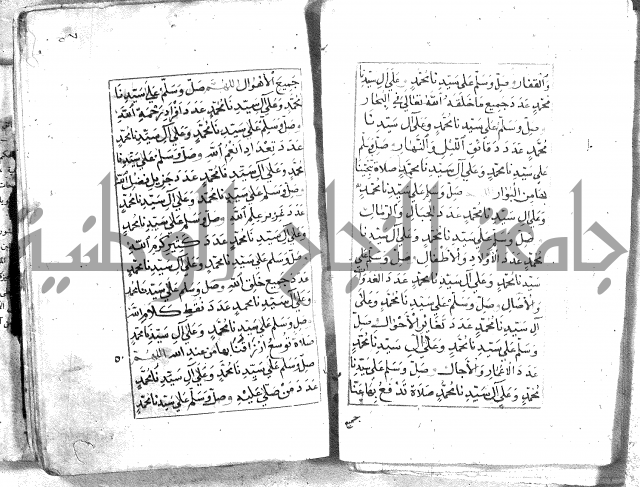 والقفار وصل وسلم على سيدنا محمد وعلى آل سيدنا
محمد عدد جميع ما خلقه الله تعالى في البحار
وصل وسلم على سيدنا محمد وعلى آل سيدنا
محمد عدد دقائق الليل والنهار وصل وسلم
على سيدنا محمد وعلى آل سيدنا محمد صلاة تنجينا
بها من البوار وصل وسلم على سيدنا محمد
وعلى آل سيدنا محمد عدد الجبال والرمال
وصل وسلم على سيدنا محمد وعلى آل سيدنا
محمد عدد الأولاد والأطفال وصل وسلم على
سيدنا محمد وعلى آل سيدنا محمد عدد الغدو
والآصال وصل وسلم على سيدنا محمد وعلى
آل سيدنا محمد عدد الأحوال وصل
وسلم على سيدنا محمد وعلى آل سيدنا محمد
عدد الأعمار والآجال وصل وسلم على سيدنا
محمد وعلى آل سيدنا محمد صلاة تدفع بها عنا
جميع
جميع الأهوال اللهم صل وسلم على سيدنا
محمد وعلى آل سيدنا محمد عدد رحمة الله
وصل وسلم على سيدنا محمد وعلى آل سيدنا محمد
عدد تعداد أنعم الله وصل وسلم على سيدنا
محمد وعلى آل سيدنا محمد عدد جزيل فضل الله
وصل وسلم على سيدنا محمد وعلى آل سيدنا محمد
عدد علم الله وصل وسلم على سيدنا محمد
وعلى آل سيدنا محمد عدد كثير كرم الله
وصل وسلم على سيدنا محمد وعلى آل سيدنا محمد
عدد جميع خلق الله وصل وسلم على سيدنا محمد
وعلى آل سيدنا محمد عدد نقط كلام الله
وصل وسلم على سيدنا محمد وعلى آل سيدنا محمد
صلاة بها من عند الله اللهم
صل وسلم على سيدنا محمد وعلى آل سيدنا محمد
عدد من صلى عليه وصل وسلم على سيدنا محمد
جامعة النجاح الوطنية